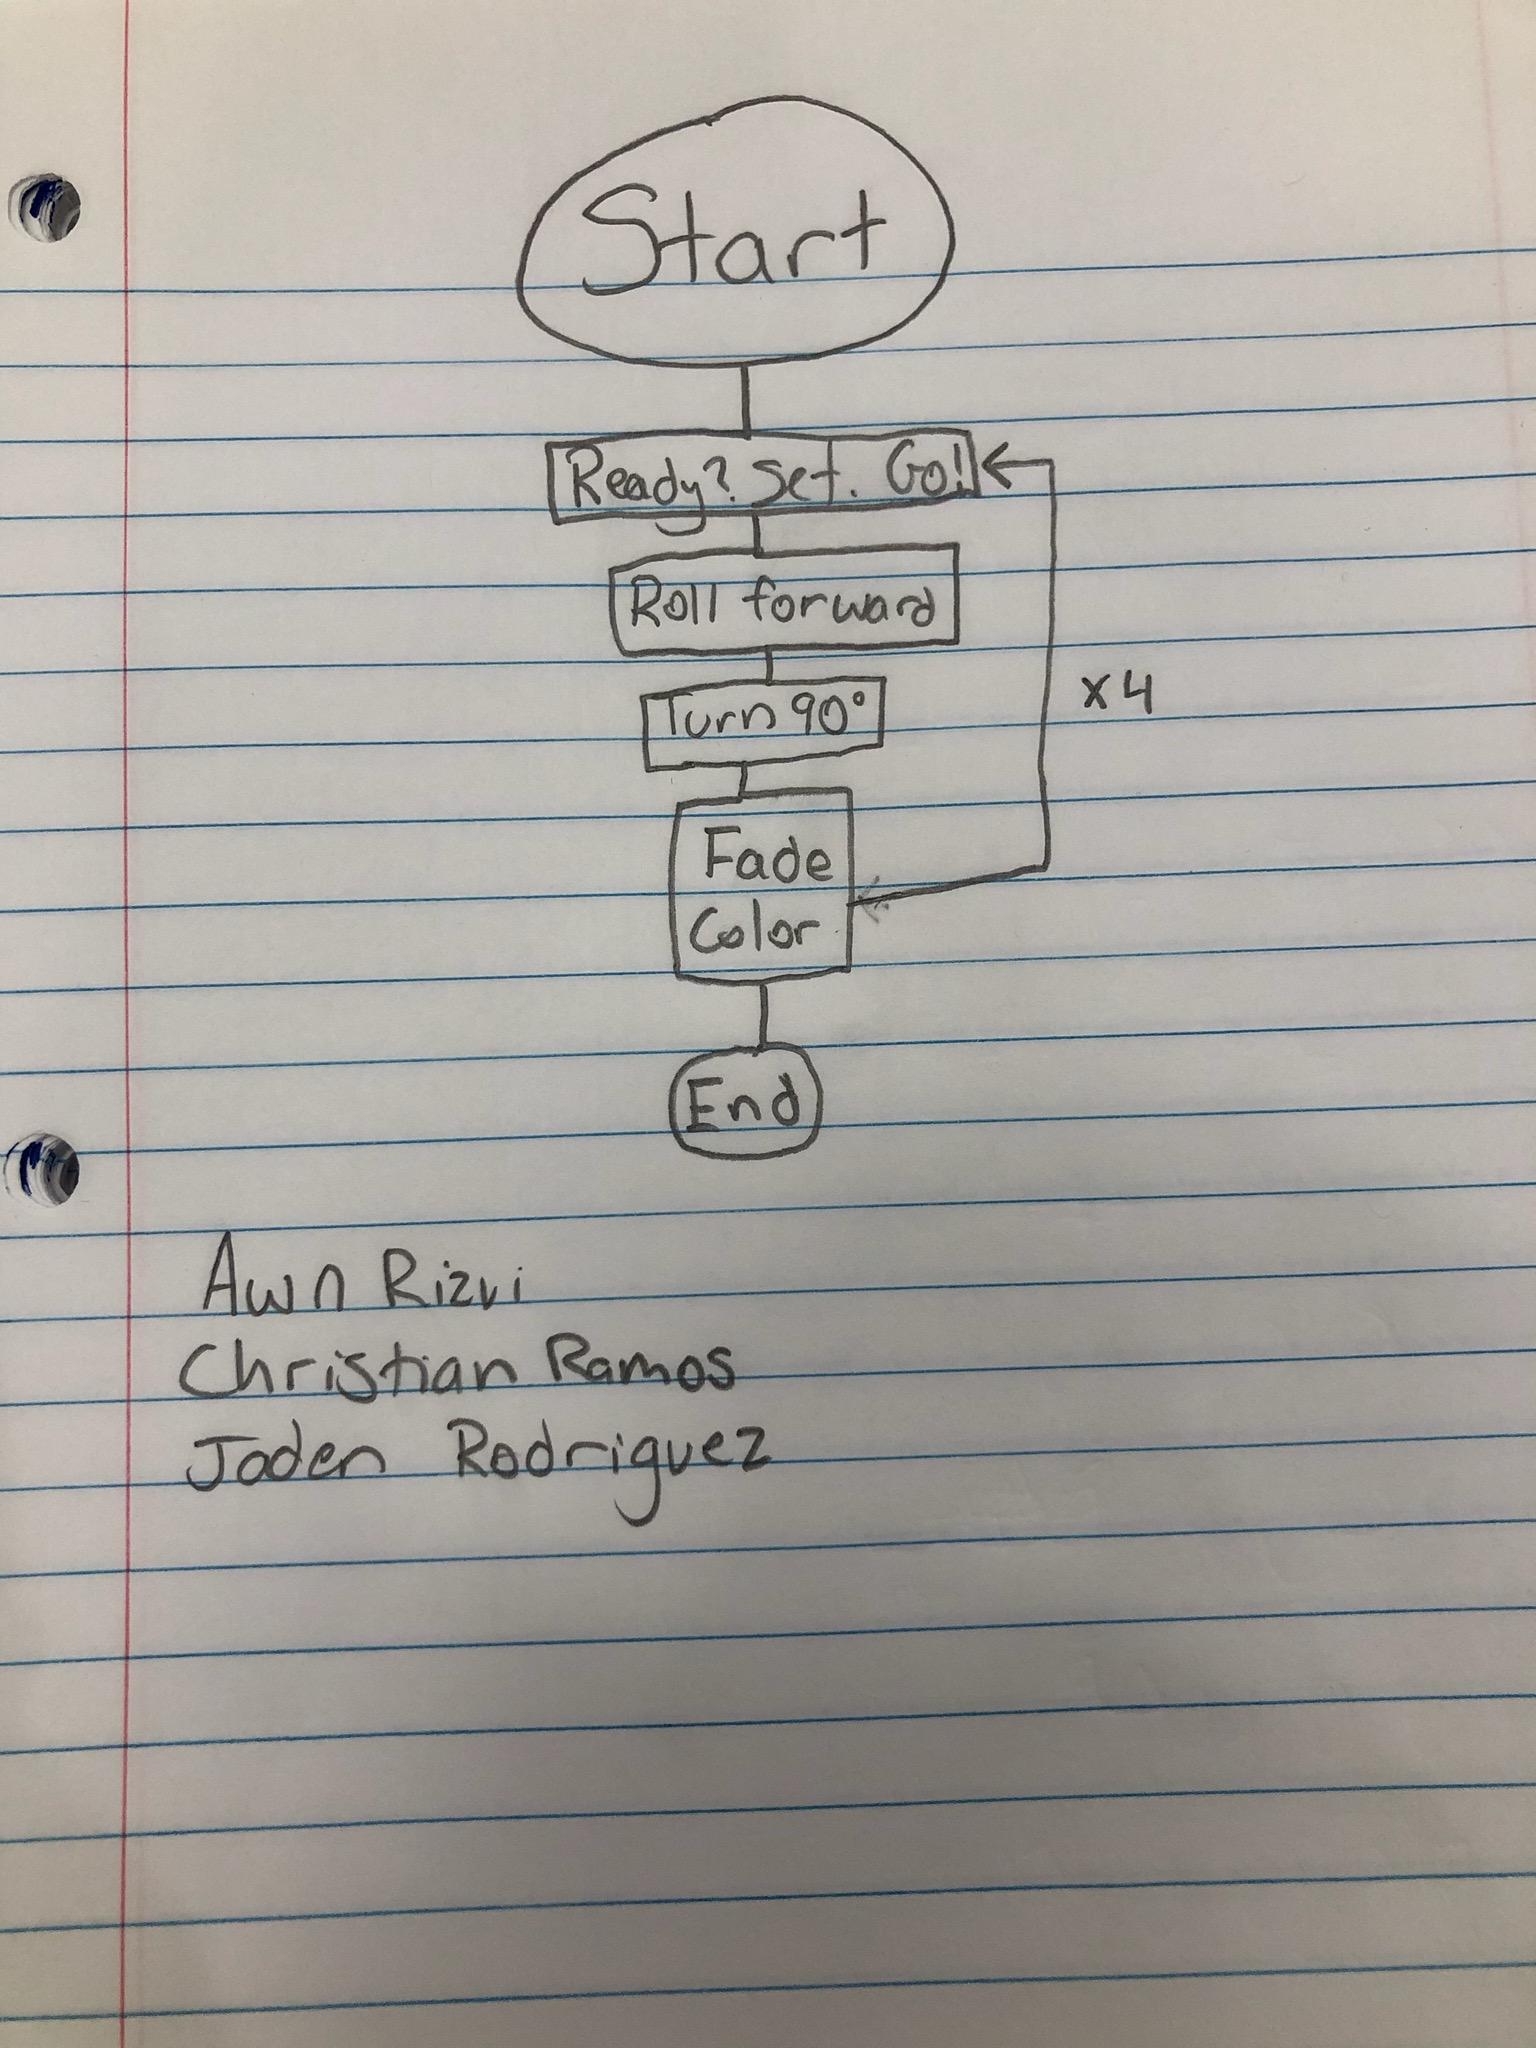 Start
Ready? Set. Go!
Roll forward
x4
Turn 90°
Fade
Color
End
Awn Rizvi
Christian Ramos
Jaden Rodriguez